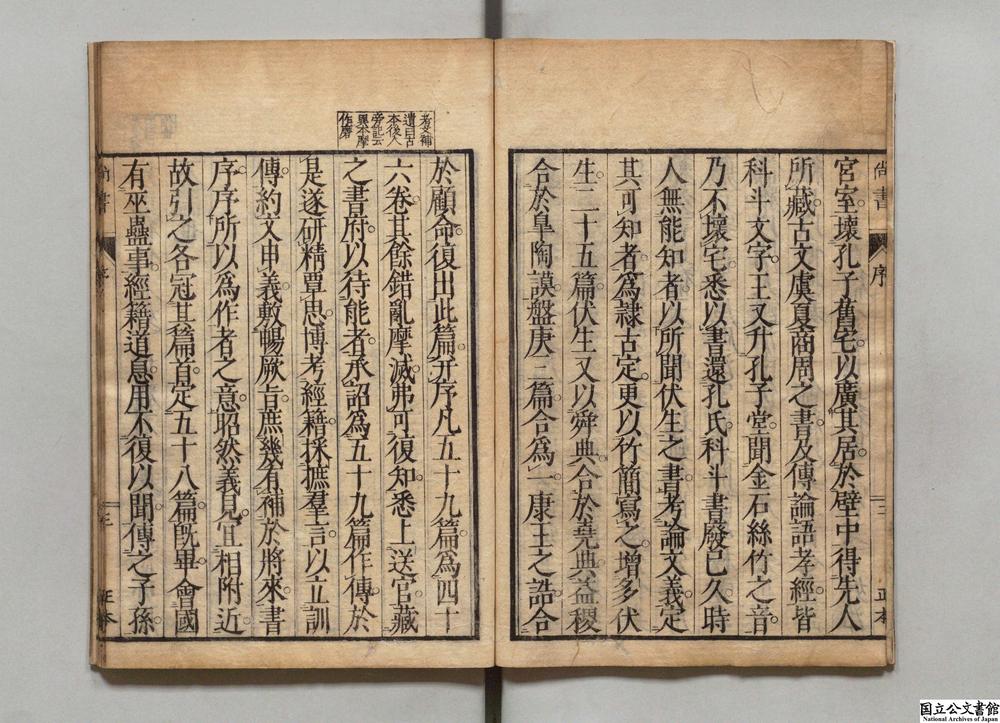 宮室壞孔子舊宅以廣其居於壁中得先人
所藏古文虞夏商周之書及傳論語孝經皆
科斗文字王又升孔子堂聞金石絲竹之音
乃不壞宅悉以書還孔氏科斗書廢已久時
人無能知者以所聞伏生之書考論文義定
其可知者爲隷古定更以竹簡寫之增多伏
生二十五篇伏生又以舜典合於堯典益稷
合於皐陶謨盤庚三篇合爲一康王之誥合
尚書
序
三
正本
考文補
遺曰古
本後人
旁記云
異本摩
作磨
於顧命復出此篇并序凡五十九篇爲四十
六卷其餘錯亂摩滅弗可復知悉上送官藏
之書府以待能者承詔爲五十九篇作傳於
是遂研精覃思博考經籍採摭羣言以立訓
傳約文申義敷暢厥旨庶幾有補於將來書
序序所以爲作者之意昭然義見宜相附近
故引之各冠其篇首定五十八篇旣畢會國
有巫蠱事經籍道息用不復以聞傳之子孫
尚書
序
三
正本
国立公文書館
National Archives of Japan